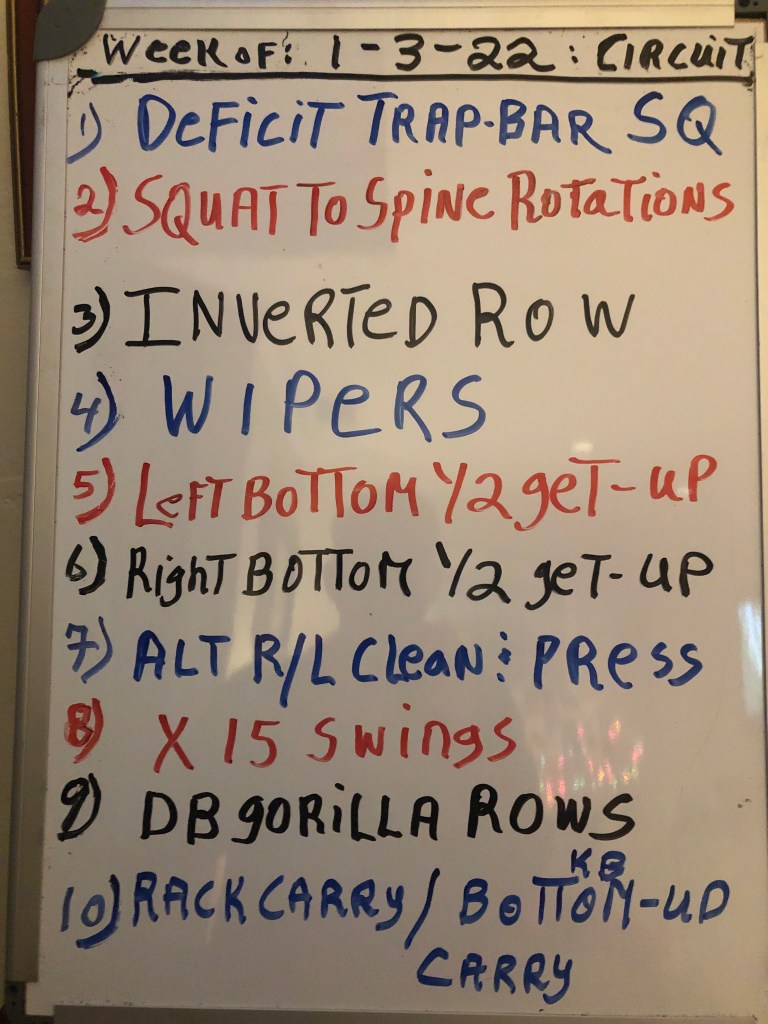 Week of: 1-3-22: CIRCUIT
1) Deficit TRAP-BAR SQ
2) SQUAT To Spine Rotations
3) INVERTED ROW
4) WIPERS
5) Left BOTTOM 1/2 get-up
6) Right BOTTOM 1/2 get-up
7) ALT R/L Clean & PRess
8) X 15 Swings
9) DB gorilla ROWS
KB
10) RACK CARRY / BOTTOM-UP
CARRY